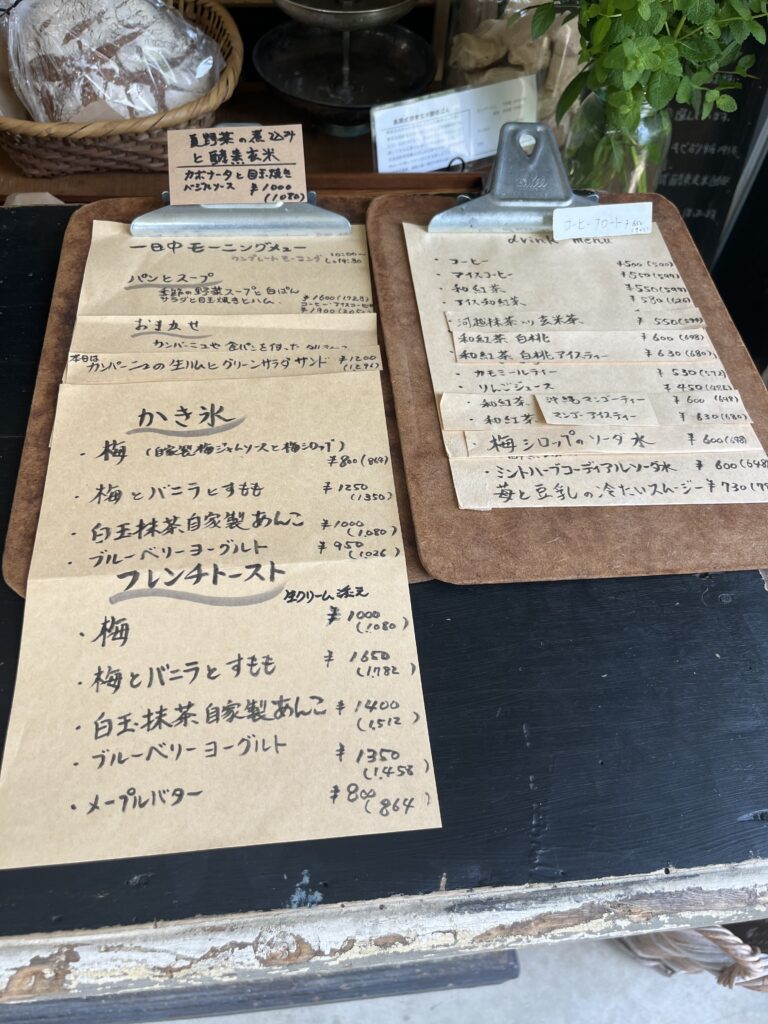 夏野菜の煮込み
と酵素玄米
カポナータと目玉焼き
バジルソース ¥1000
(1080)
一日中モーニングメニュー
ワンプレートモーニング 10:00〜
L.o 14:30
パンとスープ
季節の野菜スープと白ぱん
サラダと目玉焼きとハム
¥1600(1728)
コーヒー・アイスコーヒー付
¥1900
おまかせ
カンパーニュや食パンを使った
本日は
カンパーニュの生ハムとグリーンサラダサンド ¥1200
(1296)
かき氷
・梅 (自家製梅ジャムソースと梅シロップ)
¥800(864)
・梅とバニラとすもも ¥1250
(1350)
・白玉抹茶自家製あんこ ¥1000
(1,080)
・ブルーベリーヨーグルト ¥950
(1026)
フレンチトースト
生クリーム添え
・梅 ¥1000
(1,080)
・梅とバニラとすもも ¥1650
(1,782)
・白玉抹茶自家製あんこ ¥1400
(1,512)
・ブルーベリーヨーグルト ¥1350
(1,458)
・メープルバター ¥800
(864)
コーヒーフロート
drink menu
・コーヒー ¥500(540)
・アイスコーヒー ¥550(594)
・和紅茶 ¥550(594)
・アイス和紅茶 ¥580(626)
・河越抹茶入り玄米茶 ¥550(594)
和紅茶 白桃 ¥600(648)
・和紅茶 白桃アイスティー ¥630(680)
・カモミールティー ¥530(572)
・りんごジュース ¥450(486)
・和紅茶 沖縄マンゴーティー ¥600(648)
・和紅茶 マンゴーアイスティー ¥630(680)
・梅シロップのソーダ水 ¥600(648)
・ミントハーブコーディアルソーダ水 ¥600(648
苺と豆乳の冷たいスムージー ¥730